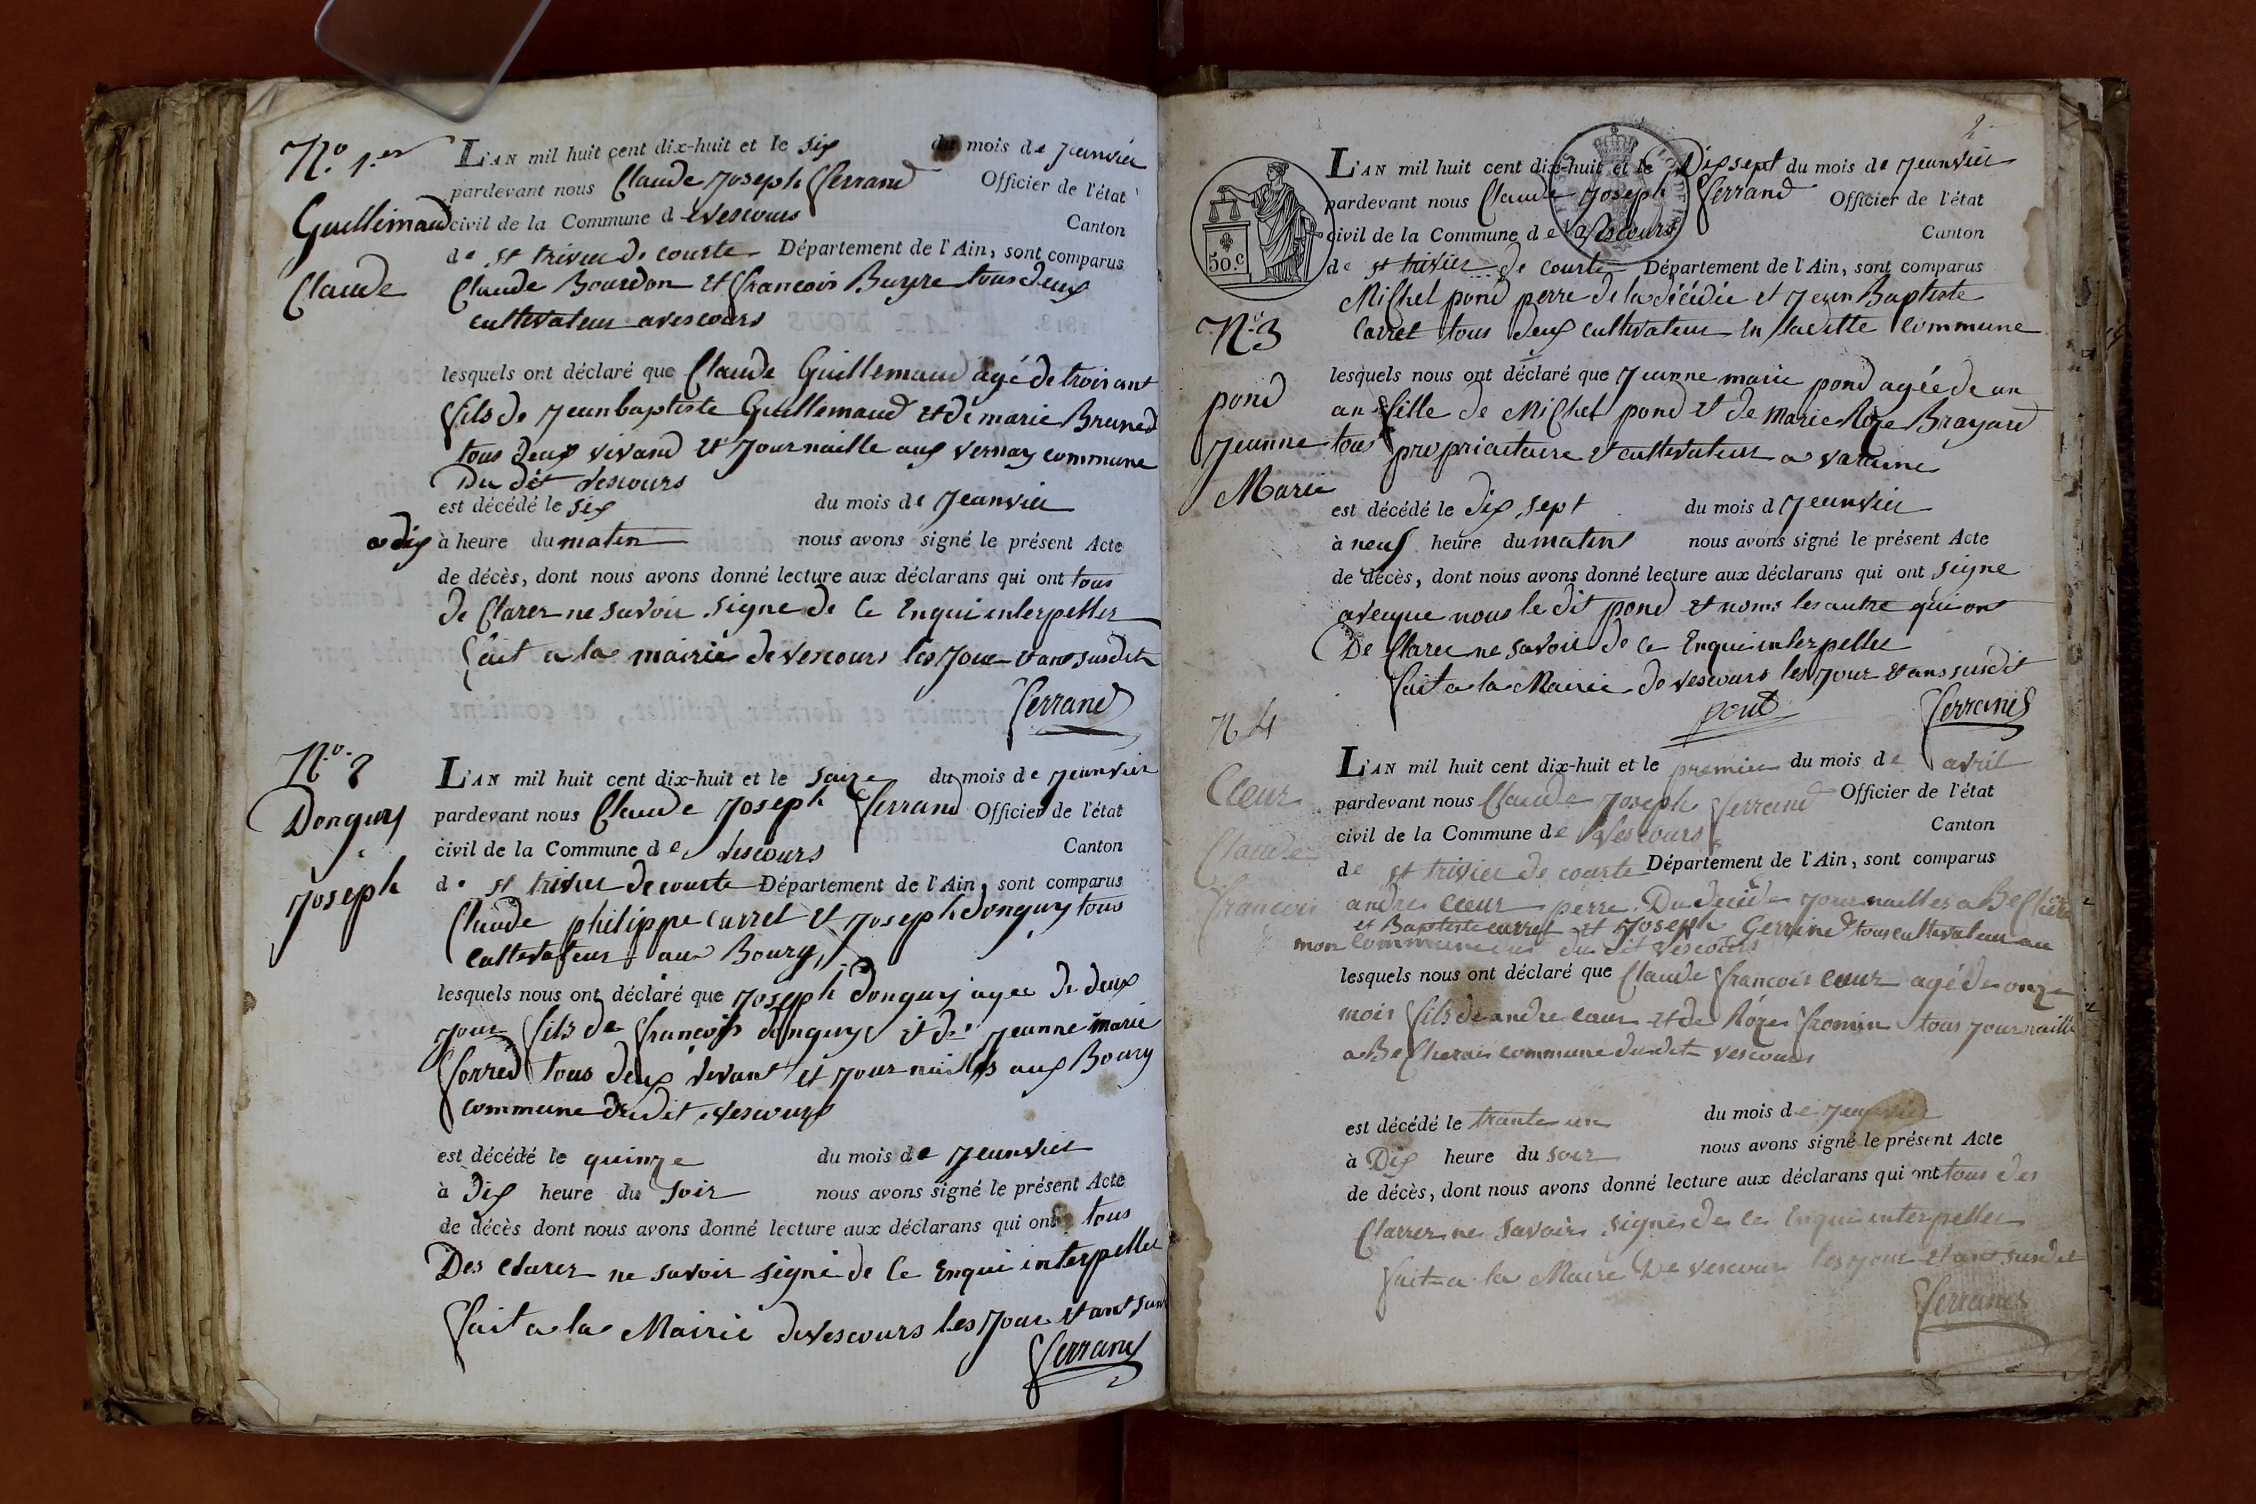 N.o 1.er
Guillemaud
Claude
L'AN mil huit cent dix-huit et le six du mois de Jeanvier
pardevant nous Claude Joseph Ferrand Officier de l'état
civil de la Commune d e vescours Canton
de st trivier de courte Département de l'Ain, sont comparus
Claude Bourdon et francois Buyre tous deux
cultivateur a vescours
lesquels ont déclaré que Claude Guillemaud agé de trois ant
fils de Jeun baptiste Guillemaud et de marie Bruned
tous deux vivand et Journaille aux vernay commune
Du dit vescours
est décédé le six du mois de Jeanvier
a dix à heure du matin nous avons signé le présent Acte
de décès, dont nous avons donné lecture aux déclarans qui ont tous
de Clarer ne savoir signe de Ce Enqui interpeller
fait a la mairie de vescours les Jour et ans susdit
ferrand
N.o 2
Donguy
Joseph
L'AN mil huit cent dix-huit et le saize du mois de Jeanvier
pardevant nous Claude Joseph ferrand Officier de l'état
civil de la Commune d e vescours Canton
de st trivier de courte Département de l'Ain, sont comparus
Claude philippe Carret et Joseph donguy tous
Cultivateur aux Bourg
lesquels nous ont déclaré que Joseph donguy agee de deux
Jour fils de francois donguy et de Jeanne marie
forred tous deux vivant et journailles aux Bourg
commune du dit vescours
est décédé le quinze du mois de Jeanvier
à Dix heure du soir nous avons signé le présent Acte
de décès dont nous avons donné lecture aux déclarans qui ont tous
Des clarer ne savoir signé de Ce Enqui interpeller
fait a la Mairie de vescours les Jour et ant sus
ferrand
2
50.c
N.o 3
pond
Jeanne
Marie
L'AN mil huit cent dix-huit et le Dix sept du mois de Jeanvier
pardevant nous Claude Joseph ferrand Officier de l'état
civil de la Commune d e vescours Canton
de st trivier de courte Département de l'Ain, sont comparus
Michel pond perre de la décédée et Jean Baptiste
Carret tous deux cultivateur en laditte Commune
lesquels nous ont déclaré que Jeanne marie pond agée de un
an fille de Michel pond et de Marie Roze Brayard
tous propriaitaire et cultivateur a varaine
est décédé le dix sept du mois d Jeanvier
à neuf heure du matin nous avons signé le présent Acte
de décès, dont nous avons donné lecture aux déclarans qui ont signe
aveuque nous le dit pond et noms les autre qui ont
De Clarer ne savoir de ce Enqui interpeller
fait a la Mairie de vescours les Jour et ans susdit
pond ferrand
N 4
Cœur
Claude
francois
L'AN mil huit cent dix-huit et le premier du mois de avril
pardevant nous Claude Joseph ferrand Officier de l'état
civil de la Commune de vescours Canton
de st trivier de courte Département de l'Ain, sont comparus
andre cœur perre Du decédé journailles a
et Baptiste carret et Joseph tous cultivateur au
commune du dit vescours
lesquels nous ont déclaré que Claude francois cœur agé de onze
mois fils de andre cœur et de Róze fromin tous journaille
a commune dudit vescours
est décédé le trante un du mois de Jeanvier
à Dix heure du soir nous avons signé le présent Acte
de décès, dont nous avons donné lecture aux déclarans qui ont tous des
Clarrer ne savoir signé de ce Enqui interpeller
fait a la Mairie De vescours les jour et ant susdit
ferrand